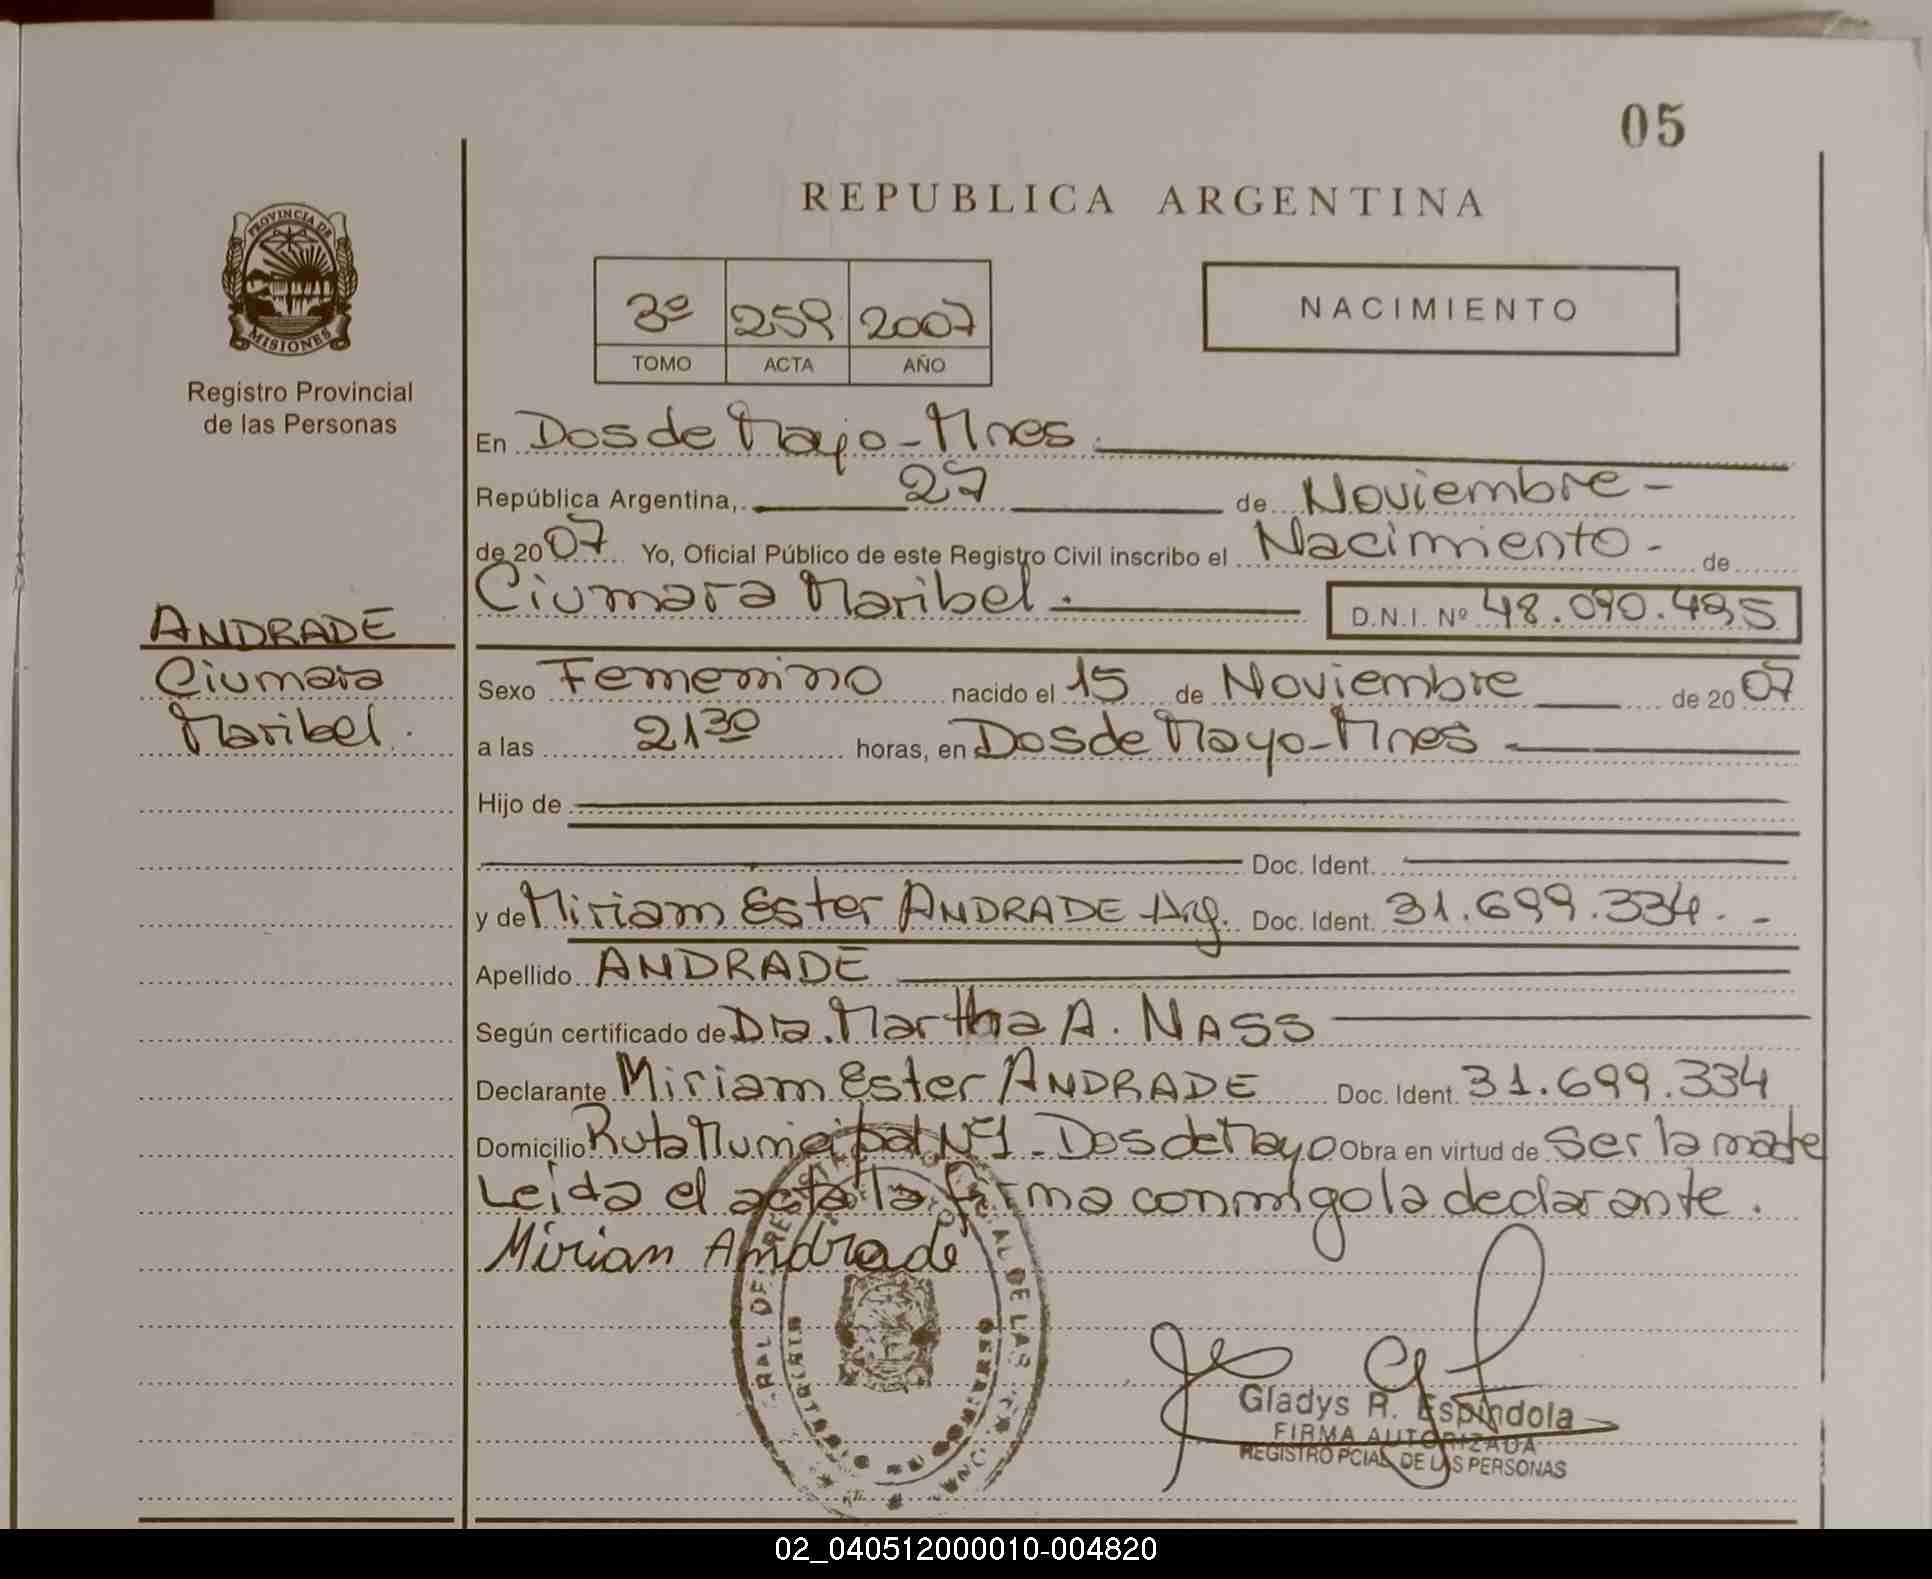 05
REPUBLICA ARGENTINA
PROVINCIA DE
MISIONES
Registro Provincial
de las Personas
3º 259 2007
TOMO ACTA AÑO
NACIMIENTO
En Dos de Mayo-Mnes.
República Argentina, 27 de Noviembre -
de 2007 Yo, Oficial Público de este Registro Civil inscribo el Nacimiento - de
Ciumara Maribel. D.N.I. Nº 48.090.495
ANDRADE
Ciumara
Maribel.
Sexo Femenino nacido el 15 de Noviembre de 2007
a las 21 30 horas, en Dos de Mayo-Mnes
Hijo de
Doc. Ident.
y de Miriam Ester ANDRADE Arg. Doc. Ident. 31.699.334. -
Apellido ANDRADE
Según certificado de Dra. Martha A. NASS
Declarante Miriam Ester ANDRADE Doc. Ident. 31.699.334
Domicilio Ruta Municipal Nº1 - Dos de Mayo Obra en virtud de Ser la madre
Leida el acta la firma conmigo la declarante.
Mirian Andrade
Gladys R. Espindola
FIRMA AUTORIZADA
REGISTRO PCIAL DE LAS PERSONAS
02_040512000010-004820